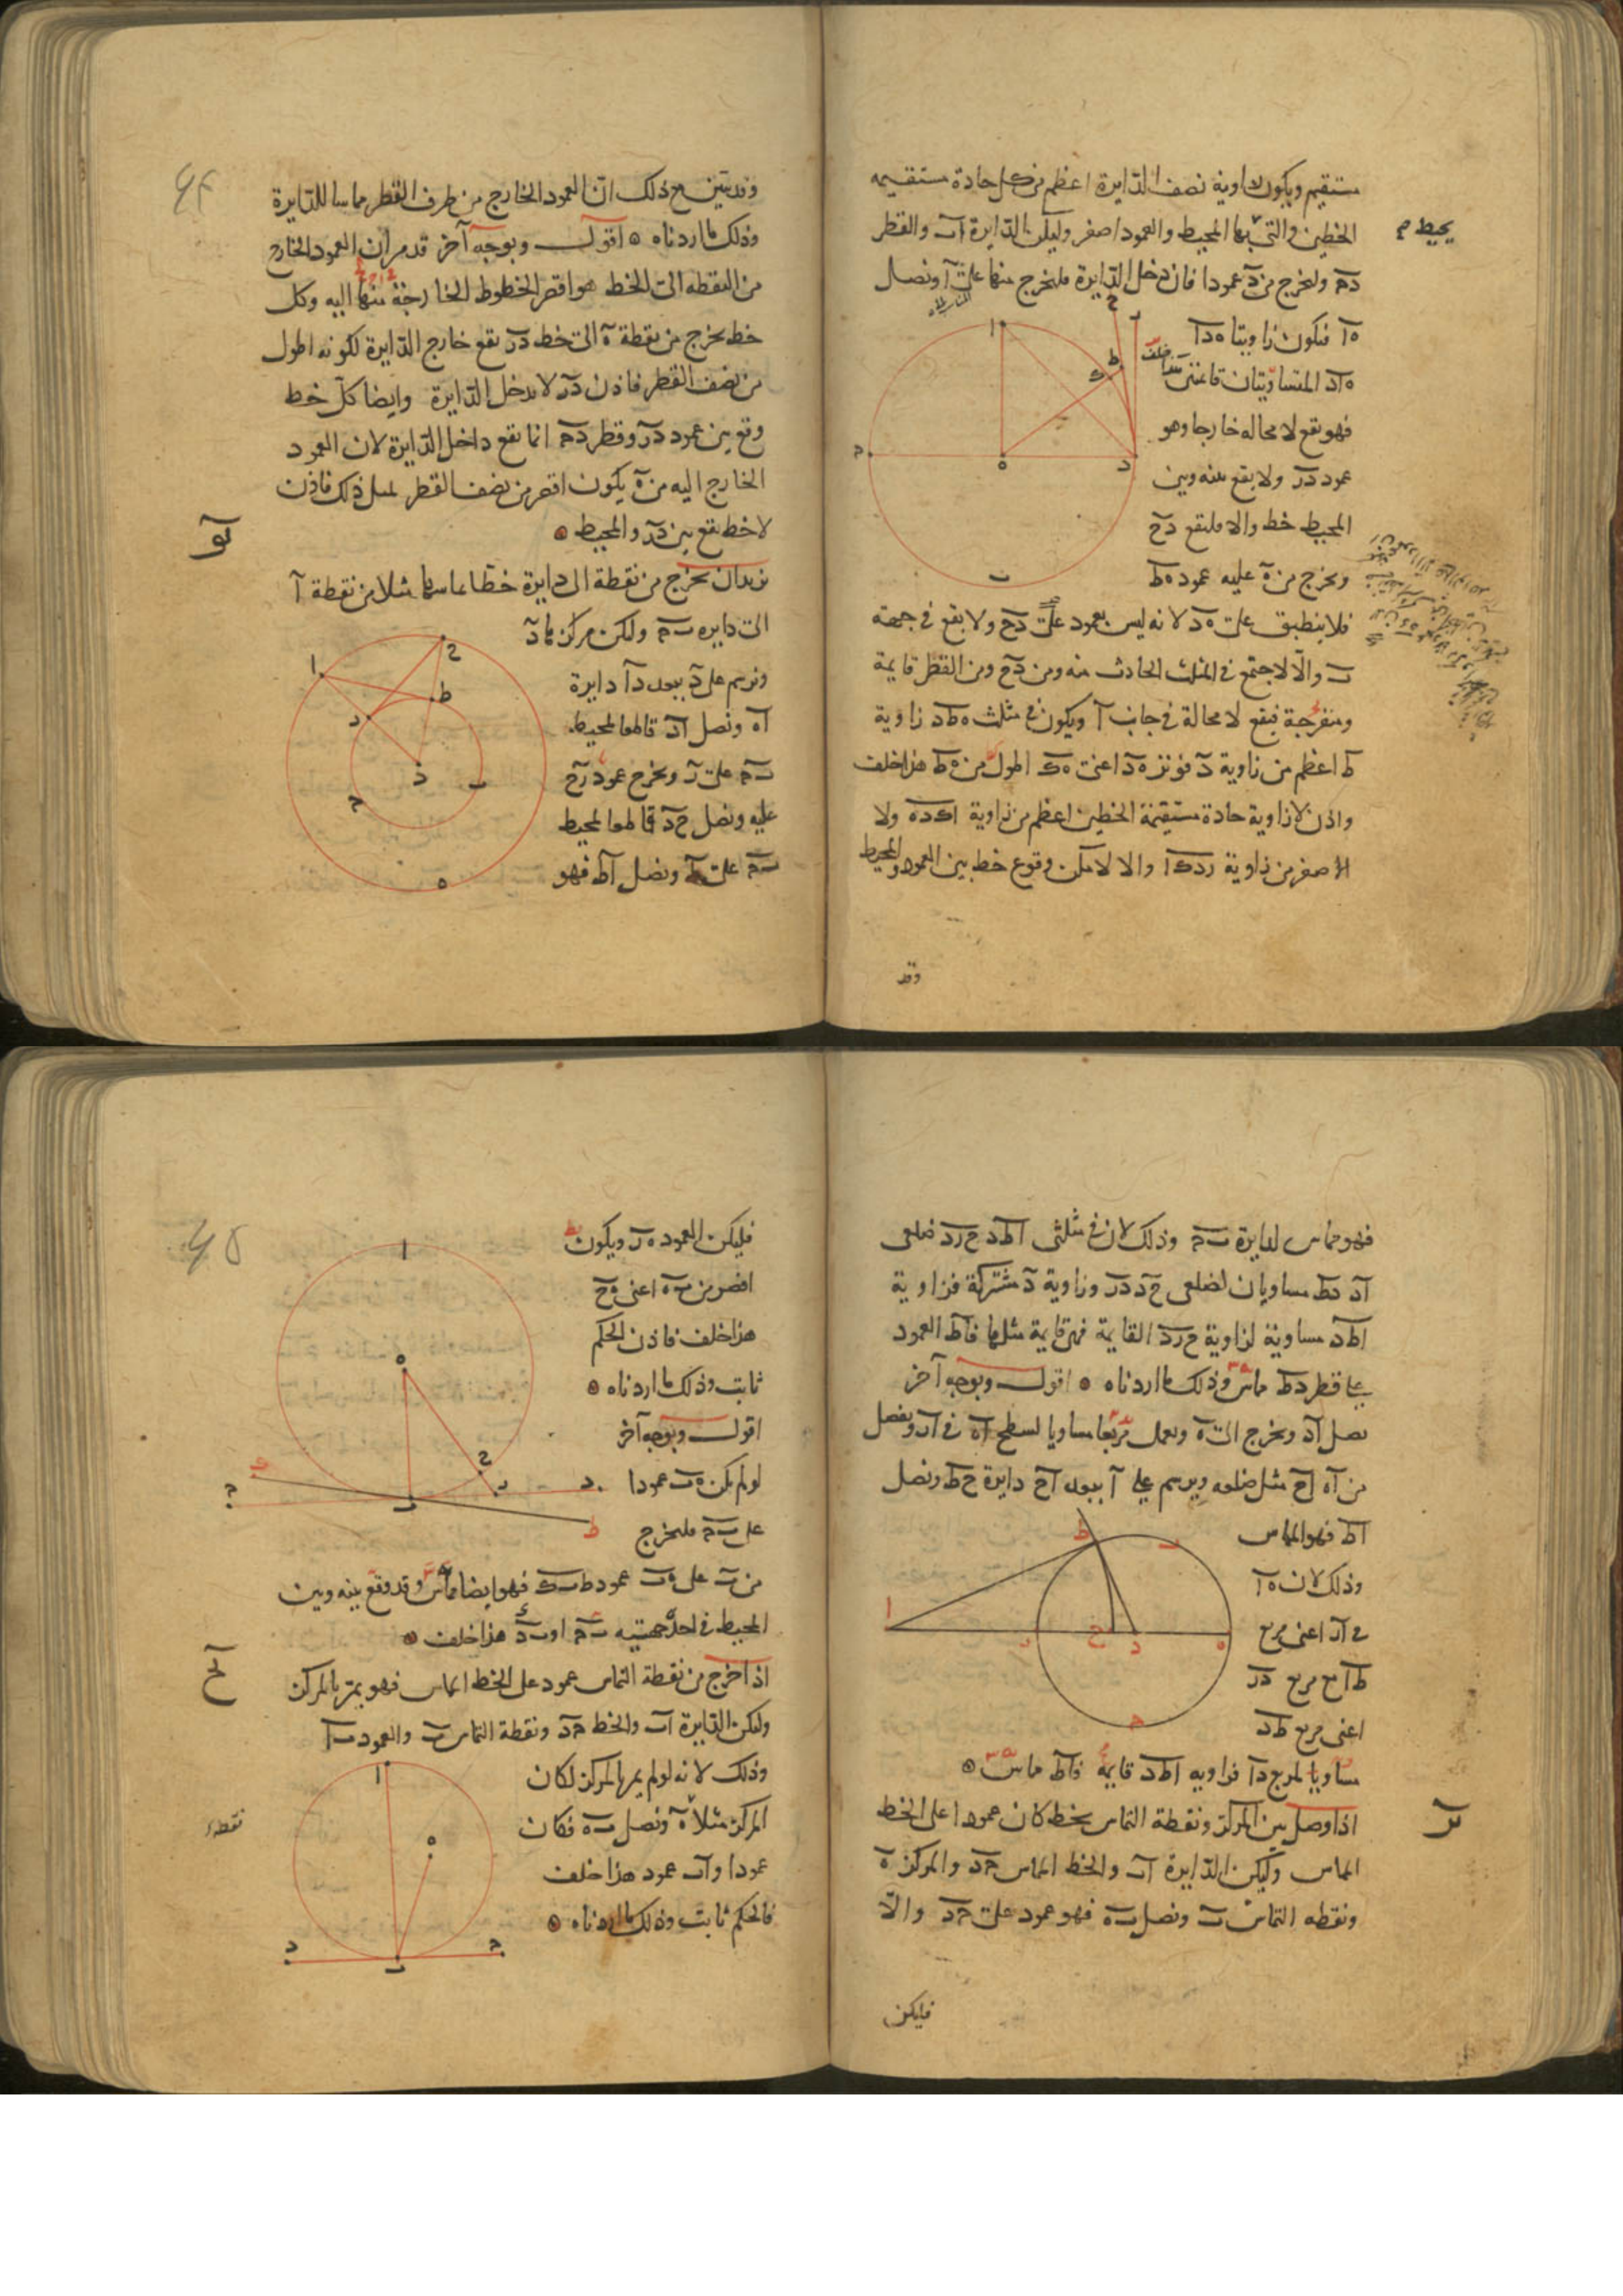 مستقيم ويكون زاوية نصف الدايرة اعظم من كل حادة مستقيمه
الخطين والتى بها المحيط والعمود اصغر وليكن الدايرة اب والقطر
يحيط م
دج وليخرج من د عمودا فان دخل الدايرة فليخرج منها على ا ونصل
ه ا فيكون زاويتا ه د ا
ه ا د المتساويتان قائمتين
فهو يقع لا محاله خارجا وهو
عمود در ولا يقع بينه وبين
المحيط خط والا فليقع دح
ونخرج من ه عليه عمود ه ط
فلا ينطبق على ه د لانه ليس بعمود على دح ولا يقع فى جهة
ب والا لاجتمع فى المثلث الحادث منه ومن دح ومن القطر قايمة
ومنفرجة فيقع لا محالة فى جانب ا ويكون فى مثلث ه ط د زاوية
ط اعظم من زاوية د فوتر ه د اعنى ه ك اطول من ه ط هذا خلف
واذن لا زاوية حادة مستقيمة الخطين اعظم من زاوية اكده ولا
اصغر من زاوية ردكا والا لامكن وقوع خط بين العمود والمحيط
وقد
وقد تبين مع ذلك ان العمود الخارج من طرف القطر مماسا للدايرة
وذلك ما اردناه ه اقول وبوجه آخر قد مر ان العمود الخارج
من النقطه الى الخط هو اقصر الخطوط الخارجة منها اليه وكل
خط يخرج من نقطة ه الى خط در يقع خارج الدايرة لكونه اطول
من نصف القطر فاذن در لا يدخل الدايرة وايضا كل خط
وقع بين عمود در وقطر دج انما يقع داخل الدايرة لان العمود
الخارج اليه من ه يكون اقصر من نصف القطر لمثل ذلك فاذن
لا خط يقع بين در والمحيط ه
يو
نريد ان نخرج من نقطة الى دايرة خطا يماسها مثلا من نقطة ا
الى دايره ب ج وليكن مركزها د
ونرسم على د ببعد دا دايرة
اه ونصل اد قاطعا لمحيط
ب ج على ر ونخرج عمود رح
عليه ونصل ح د قاطعا لمحيط
ب ج على ط ونصل اط فهو
فهو مماس لدايرة ب ج وذلك لان فى مثلثى اط د ح ر د ضلعى
اد دط مساويان لضلعى ح د در وزاوية د مشتركة فزاوية
اط د مساوية لزاوية ح ر د القايمة فهى قايمة مثلها فاط العمود
على قطر دط مماس وذلك ما اردناه ه اقول وبوجه آخر
نصل اد ونخرج الى ه ونعمل مربعا مساويا لسطح اه فى ار ونفصل
من اه اح مثل ضلعه ونرسم على ا ببعد اح دايرة ح ط ونصل
اط فهو المماس
وذلك لان ه ا
فى ار اعنى مربع
ط ا مع مربع در
اعنى مربع ط د
مساويا لمربع دا فزاويه اط د قايمة فاط مماس ه
يز
اذا وصل بين المركز ونقطة التماس بخط كان عمودا على الخط
المماس وليكن الدايرة اب والخط المماس ج د والمركز ه
ونقطه التماس ب ونصل ب ه فهو عمود على ج د والا
فليكن
فليكن العمود ه ر ويكون
اقصر من ب ه اعنى ه ح
هذا خلف فاذن الحكم
ثابت وذلك ما اردناه ه
اقول وبوجه آخر
لو لم يكن ه ب عمودا
على ب ج فليخرج
من ب على ه ب عمود ط ب ك فهو ايضا مماس وقد وقع بينه وبين
المحيط فى احد جهتيه ب ج او ب د هذا خلف ه
يح
اذا خرج من نقطة التماس عمود على الخط المماس فهو يمر بالمركز
وليكن الدايرة اب والخط ج د ونقطة التماس ب والعمود ب ا
وذلك لانه لو لم يمر بالمركز لكان
المركز مثلا ه ونصل ب ه فكان
نقطة
عمودا واب عمود هذا خلف
فالحكم ثابت وذلك ما اردناه ه